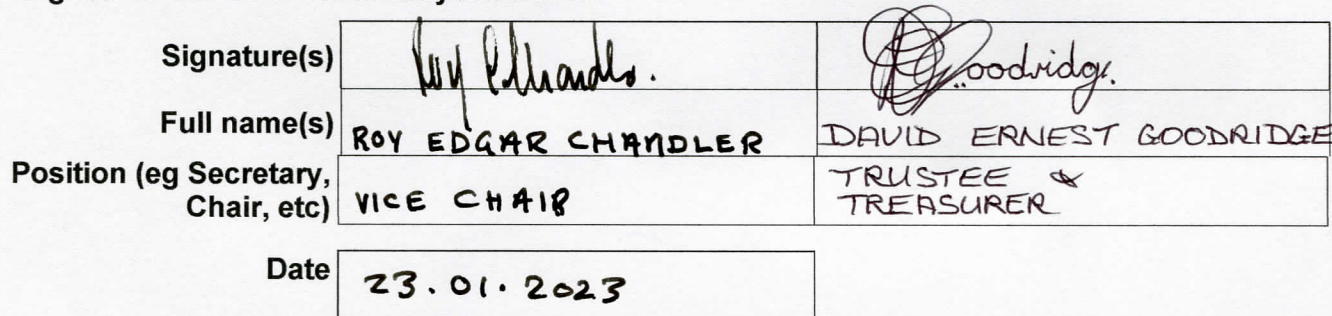 Signature(s) Roy E Chandler. Goodridge.
Full name(s) ROY EDGAR CHANDLER DAVID ERNEST GOODRIDGE
Position (eg Secretary, TRUSTEE &
Chair, etc) VICE CHAIR TREASURER
Date 23.01.2023